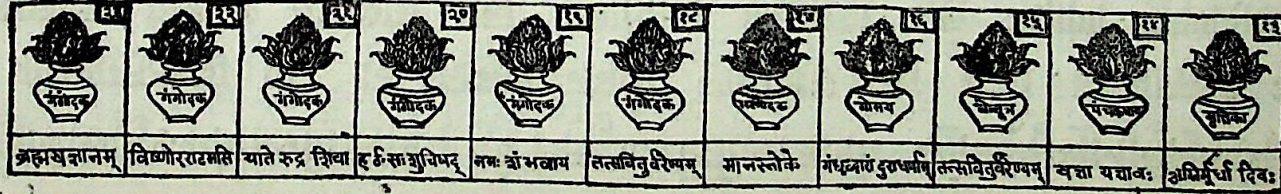 २३ २२ २१ २० १९ १८ १७ १६ १५ १४ १३
गंगोदक गंगोदक गंगोदक गंगोदक गंगोदक गंगोदक गोमय गोमूत्र पंचकषाय मृत्तिका
ब्रह्मयज्ञानम् विष्णोरराटमसि याते रुद्र शिवा हᳪसः शुचिषद् नमः शंभवाय तत्सवितुर्वरेण्यम् मानस्तोके गंधद्वारां दुराधर्षाम् तत्सवितुर्वरेण्यम् यज्ञा यज्ञावः अग्निर्मूर्धा दिवः